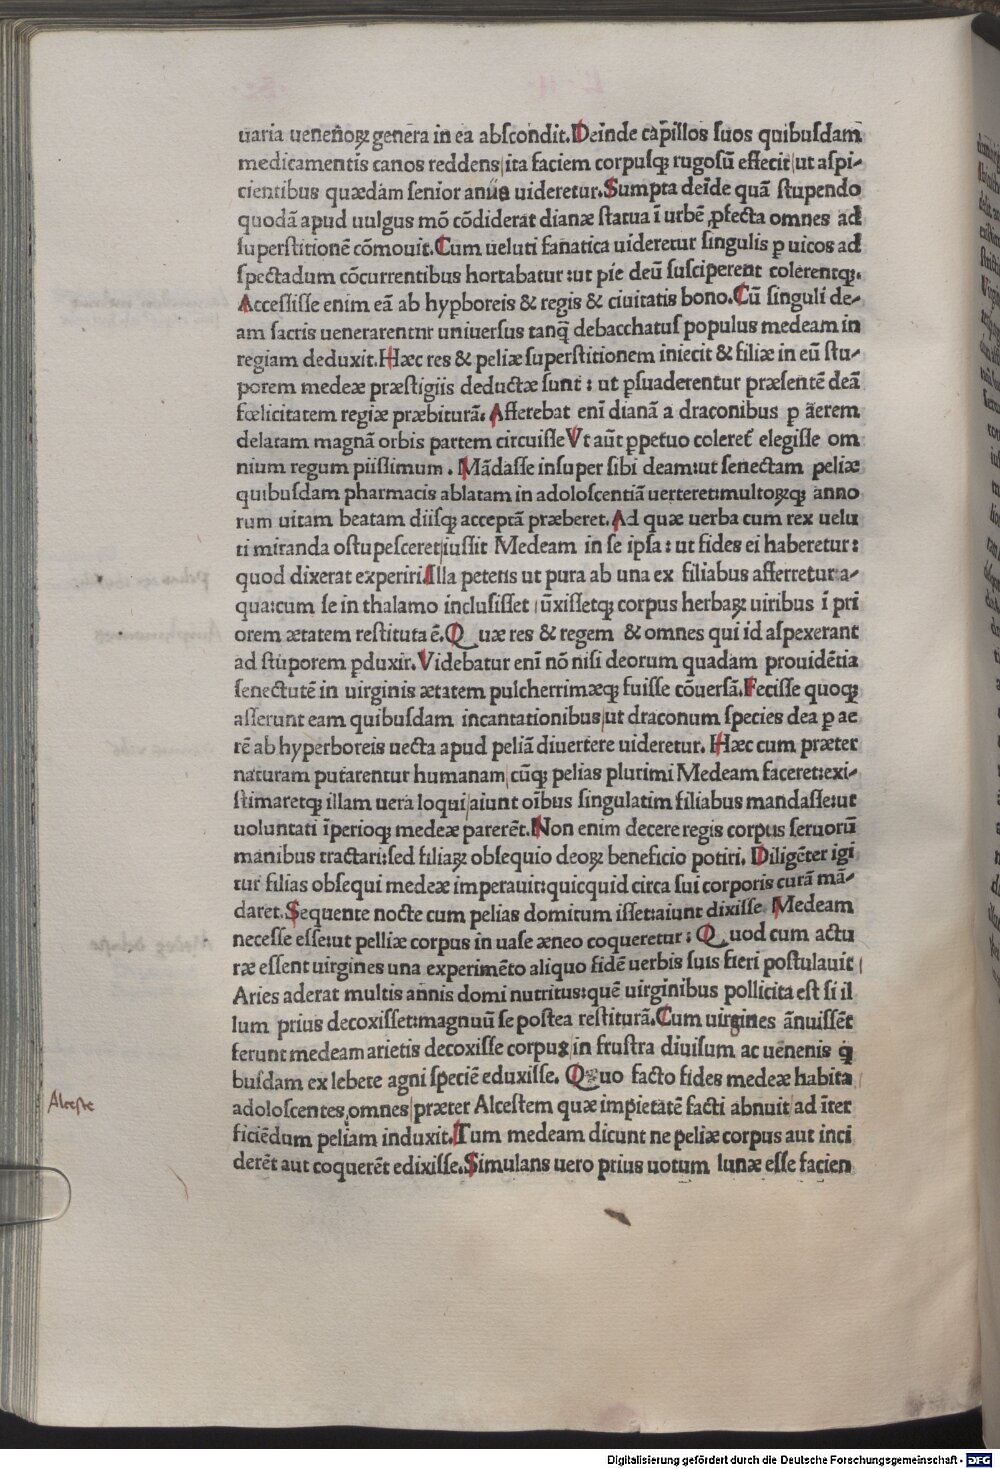 uaria uenenoꝝ genera in ea abſcondit. Deinde capillos ſuos quibuſdam
medicamentis canos reddens|ita faciem corpuſqꝫ rugoſū effecit|ut aſpi-
cientibus quædam ſenior anus uideretur. Sumpta deīde quā ſtupendo
quodā apud uulgus mō cōdiderat dianæ ſtatua ī urbē ꝓfecta omnes ad
ſuperſtitionē cōmouit. Cum ueluti fanatica uideretur ſingulis ꝑ uicos ad
ſpectādum cōcurrentibus hortabatur:ut pie deū ſuſciperent colerentqꝫ.
Acceſſiſſe enim eā ab hypboreis & regis & ciuitatis bono. Cū ſinguli de-
am ſacris uenerarentnr uniuerſus tanq̄ debacchatuſ populus medeam in
regiam deduxit. Hæc res & peliæ ſuperſtitionem iniecit & filiæ in eū ſtu-
porem medeæ præſtigiis deductæ ſunt : ut ꝑſuaderentur præſentē deā
fœlicitatem regiæ præbiturā. Afferebat enī dianā a draconibus ꝑ āerem
delatam magnā orbis partem circuiſſe Vt aūt ꝑpetuo coleret̄ elegiſſe om
nium regum piiſſimum . Mādaſſe inſuper ſibi deam:ut ſenectam peliæ
quibuſdam pharmacis ablatam in adoloſcentiā uerteret:multoꝝqꝫ anno
rum uitam beatam diiſqꝫ acceptā præberet. Ad quæ uerba cum rex uelu
ti miranda oſtupeſceret|iuſſit Medeam in ſe ipſa : ut fides ei haberetur:
quod dixerat experiri. Illa petens ut pura ab una ex filiabus afferretur a-
qua:cum ſe in thalamo incluſiſſet |ūxiſſetqꝫ corpus herbaꝝ uiribus ī pri
orem ætatem reſtituta ē. Quæ res & regem & omnes qui id aſpexerant
ad ſtuporem ꝑduxit. Videbatur enī nō niſi deorum quadam prouidētia
ſenectutē in uirginis ætatem pulcherrimæqꝫ fuiſſe cōuerſā. Feciſſe quoqꝫ
aſſerunt eam quibuſdam incantationibus|ut draconum ſpecies dea ꝑ ae
rē ab hyperboreis uecta apud peliā diuertere uideretur. Hæc cum præter
naturam putarentur humanam|cūqꝫ pelias plurimi Medeam faceret:exi-
ſtimaretqꝫ illam uera loqui|aiunt oībus ſingulatim filiabus mandaſſe:ut
uoluntati īperioqꝫ medeæ parerēt. Non enim decere regis corpus ſeruorū
manibus tractari:ſed filiaꝝ obſequio deoꝝ beneficio potiri. Diligēter igi
tur filias obſequi medeæ imperauit:quicquid circa ſui corporis curā mā-
daret. Sequente nocte cum pelias domitum iſſet:aiunt dixiſſe Medeam
neceſſe eſſe:ut pelliæ corpus in uaſe æneo coqueretur : Quod cum actu
ræ eſſent uirgines una experimēto aliquo fidē uerbis ſuis fieri poſtulauit|
Aries aderat multis annis domi nutritus:quē uirginibus pollicita eſt ſi il
lum prius decoxiſſet:magnuū ſe poſtea reſtiturā. Cum uirgines ānuiſſēt
ferunt medeam arietis decoxiſſe corpus|in fruſtra diuiſum ac uenenis ꝗ
buſdam ex lebete agni ſpeciē eduxiſſe. Quo facto fides medeæ habita
adoloſcentes omnes|præter Alceſtem quæ impietatē facti abnuit|ad īter
ficiēdum peliam induxit. Tum medeam dicunt ne peliæ corpus aut inci
derēt aut coquerēt edixiſſe. Simulans uero prius uotum lunæ eſſe facien
Alceste
Digitalisierung gefördert durch die Deutsche Forschungsgemeinschaft - DFG